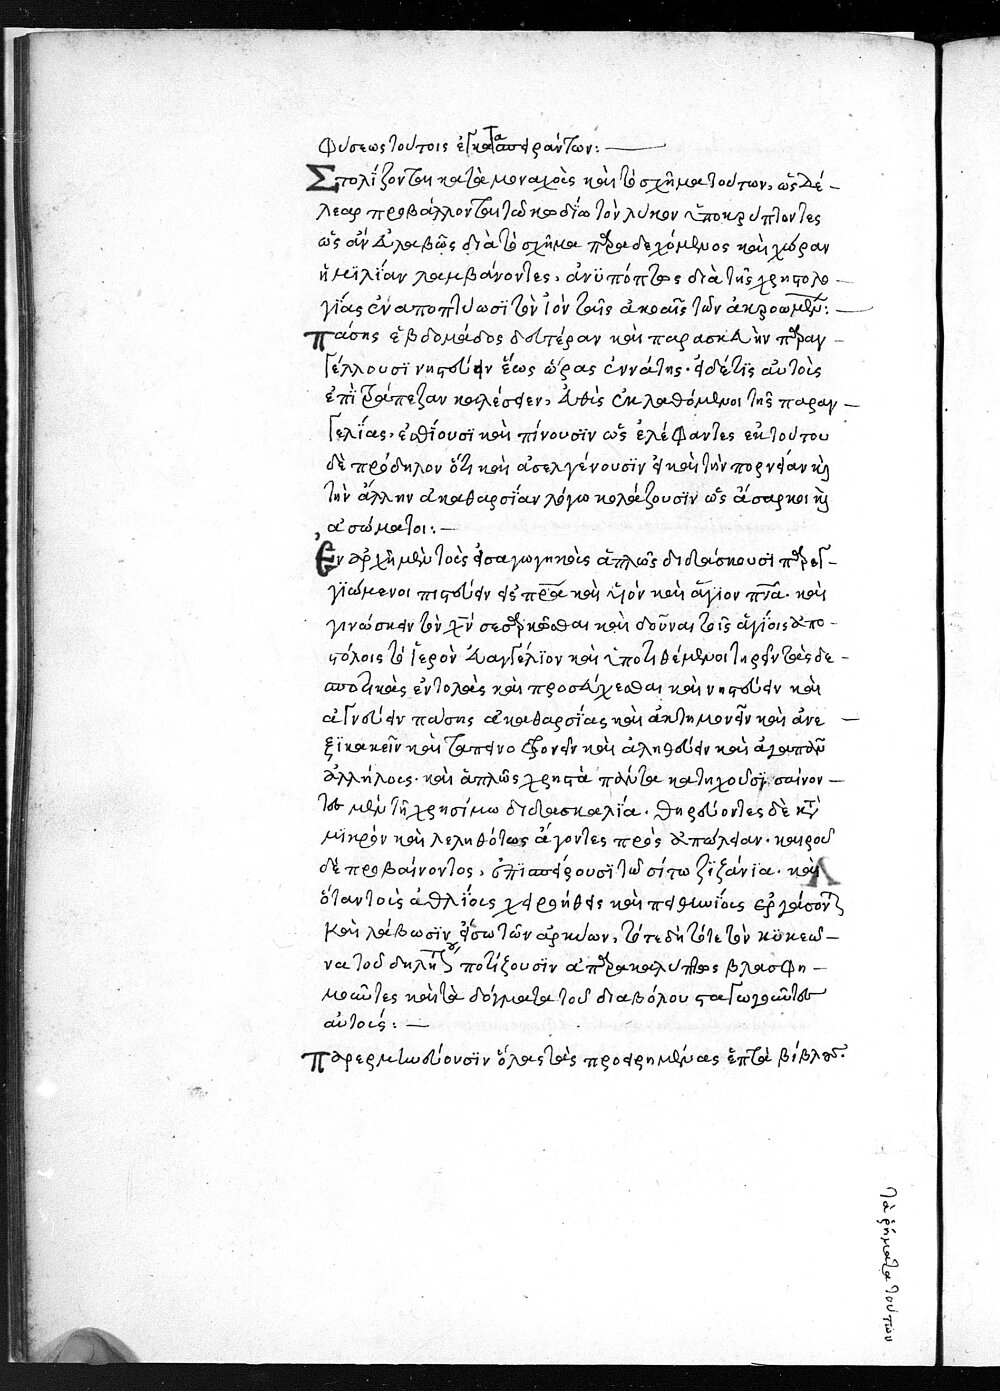 φύσεως τούτοις ἐγκατασπειράντων:
Στολίζονται κατὰ μοναχοὺς καὶ τὸ σχῆμα τούτων, ὡς δέ-
λεαρ προβάλλονται τῷ κωδίῳ τὸν λύκον ὑποκρύπτοντες
ὡς ἂν εὐλαβῶς διὰ τὸ σχῆμα παραδεχόμενος καὶ χώραν
ὁμιλίαν λαμβάνοντες, ἀνυπόπτως διὰ τῆς χρηστολο-
γίας ἐναποπτύωσι τὸν ἰὸν ταῖς ἀκοαῖς τῶν ἀκροωμένων:
Πάσης ἑβδομάδος δευτέραν καὶ παρασκευὴν παραγ-
γέλλουσι νηστεύειν ἕως ὥρας ἐννάτης. εἰ δέ τις αὐτοὺς
ἐπὶ τράπεζαν καλέσειεν, εὐθὺς ἐκλαθόμενοι τῆς παραγ-
γελίας, ἐσθίουσι καὶ πίνουσιν ὡς ἐλέφαντες ἐκ τούτου
δὲ πρόδηλον ὅτι καὶ ἀσελγένουσιν εἰ καὶ τὴν πορνείαν καὶ
τὴν ἄλλην ἀκαθαρσίαν λόγω κολάζουσιν ὡς ἄσαρκοι καὶ
ἀσώματοι:
Ἐν ἀρχῆ μὲν τοὺς εἰσαγωγικοὺς ἁπλῶς διδάσκουσι παρεγ-
γιώμενοι πιστεύειν εἰς πρα καὶ υἱὸν καὶ ἅγιον πνα. καὶ
γινώσκειν τὸν χν σεσαρκῶσθαι καὶ δοῦναι τοῖς ἁγίοις ἀπο-
στόλοις τὸ ἱερὸν εὐαγγέλιον καὶ ὑποτιθέμενοι τηρεῖν τὰς δε-
σποτικὰς ἐντολὰς καὶ προσεύχεσθαι καὶ νηστεύειν καὶ
ἁγνεύειν πάσης ἀκαθαρσίας καὶ ἀκτημονεῖν καὶ ἀνε-
ξικακεῖν καὶ ταπεινοφρονεῖν καὶ ἀληθεύειν καὶ ἀγαπᾶν
ἀλλήλους. καὶ ἁπλῶς χρηστὰ πάντα κατηχοῦσι. σαίνον-
τες μὲν τῆ χρησίμω διδασκαλία. θηρεύοντες δὲ κατὰ
μικρὸν καὶ λεληθότως ἄγοντες πρὸς ἀπώλειαν. καιροῦ
δὲ προβαίνοντος, ἐπισπείρουσι τῶ σίτω ζιζάνια. καὶ
ὅταν τοὺς ἀθλίους χειροήθεις καὶ πειθηνίους ἐργάσονται
καὶ λάβωσιν εἴσω τῶν ἀρκύων, τότε δὴ τότε τὸν κυκεῶ-
να τοῦ δηλητηρίου ποτίζουσιν ἀπαρακαλύπτως βλασφη-
μοῦντες καὶ τὰ δόγματα τοῦ διαβόλου σταγωγοῦντες
αὐτούς:
Παρερμηνεύουσιν ὅλας τὰς προειρημένας ἑπτὰ βίβλους.
τὰ ῥήματα τούτων